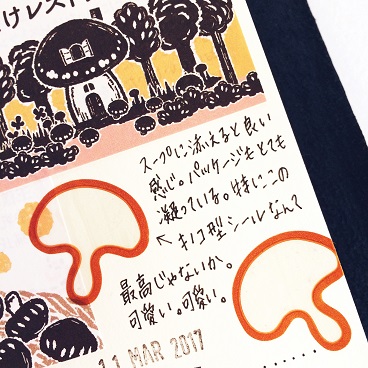 けレスト
スープに添えると良い
感じ。パッケージもとても
凝っている。特にこの
← キノコ型シールなんて
最高じゃないか。
可愛い。可愛い。
11 MAR 2017